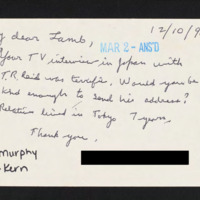 12/10/9
y dear Lamb,
MAR 2 - ANS'D
Your TV interview in Japan with
T.R. Reid was terrific. Would you be
kind enough to send his address?
Relatives lived in Tokyo 7 years.
Thank you,
Murphy
Kern